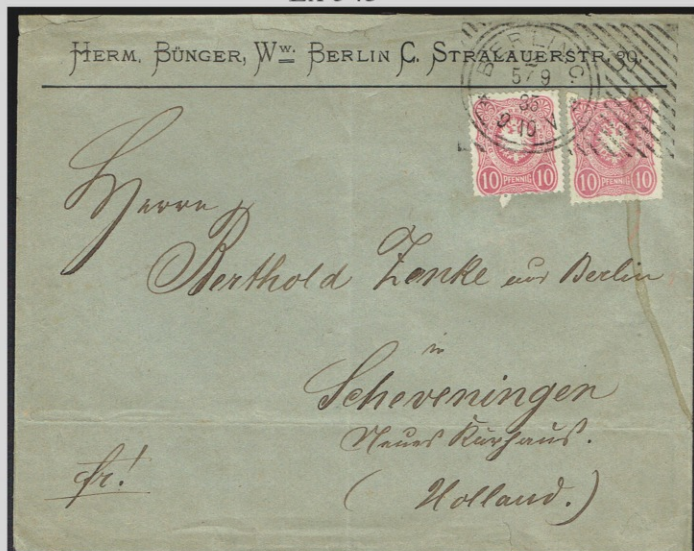 HERM. BÜNGER, Ww. BERLIN C. STRALAUERSTR. 39.
BERLIN C
5/9
85
9-10 V
10 PFENNIG 10
10 PFENNIG 10
Herrn
Berthold Zenke aus Berlin
in
Scheveningen
Neues Kurhaus.
(Holland.)
fr!